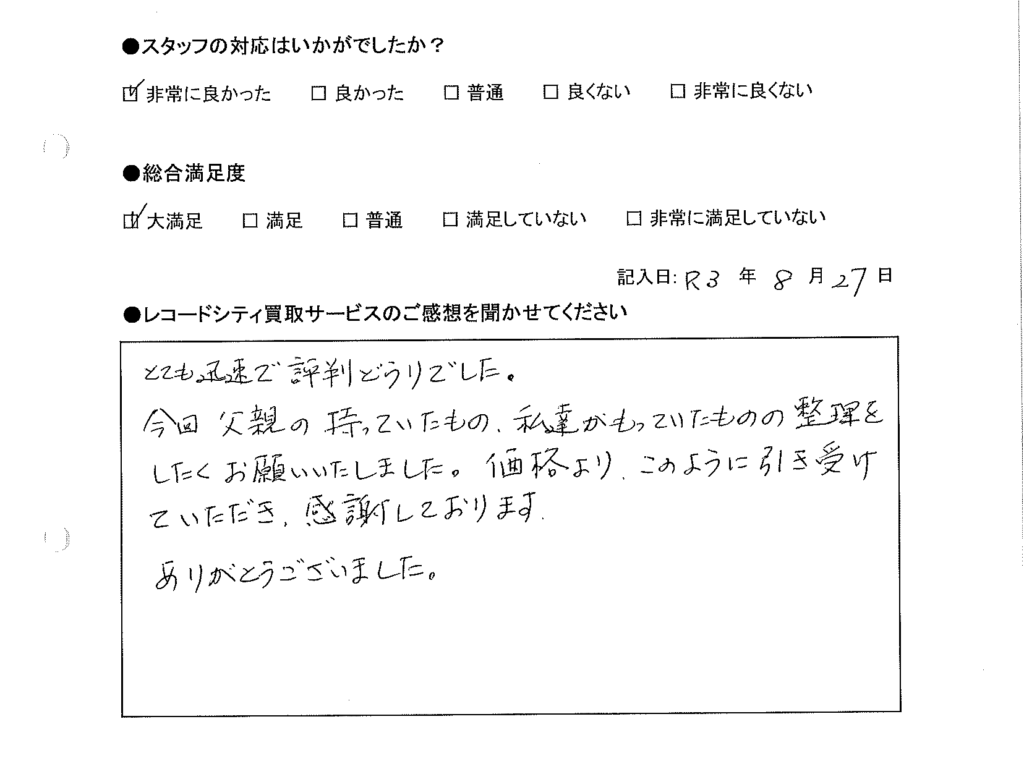 ●スタッフの対応はいかがでしたか？
☑ 非常に良かった ☐ 良かった ☐ 普通 ☐ 良くない ☐ 非常に良くない
●総合満足度
☑ 大満足 ☐ 満足 ☐ 普通 ☐ 満足していない ☐ 非常に満足していない
記入日: R3 年 8 月 27 日
●レコードシティ買取サービスのご感想を聞かせてください
とても迅速で評判どうりでした。
今回父親の持っていたもの、私達がもっていたものの整理を
したくお願いいたしました。価格より、このように引き受け
ていただき、感謝しております.
ありがとうございました。